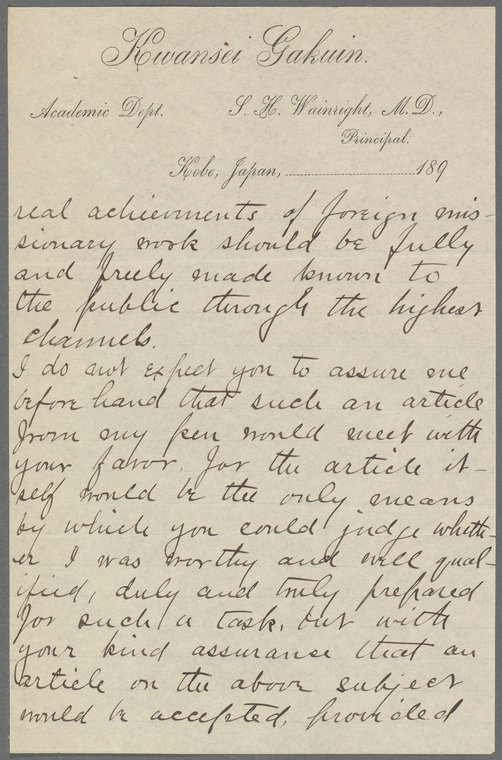 Kwansei Gakuin.
Academic Dept. S. H. Wainright, M.D.,
Principal.
Kobe, Japan, 189
real achievments of foreign mis-
sionary work should be fully
and freely made known to
the public through the highest
channels.
I do not expect you to assure me
before hand that such an article
from my pen would meet with
your favor, for the article it-
self would be the only means
by which you could judge wheth-
er I was worthy and well qual-
ified, duly and truly prepared
for such a task, but with
your kind assuranse that an
article on the above subject
would be accepted, provided